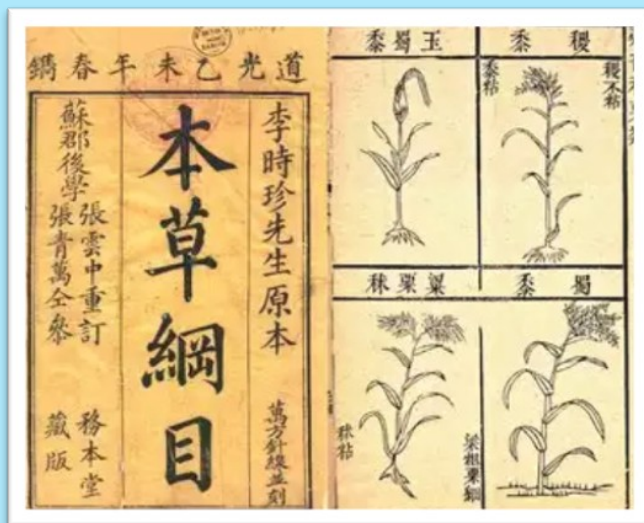 道光乙未年春鐫
李時珍先生原本
萬方針線並刻
本草綱目
蘇郡後學
張雲中重訂
張青萬仝參
務本堂
藏版
稷黍
稷不粘
黍粘
玉蜀黍
蜀黍
粱粟秫
粱粗粟細
秫粘